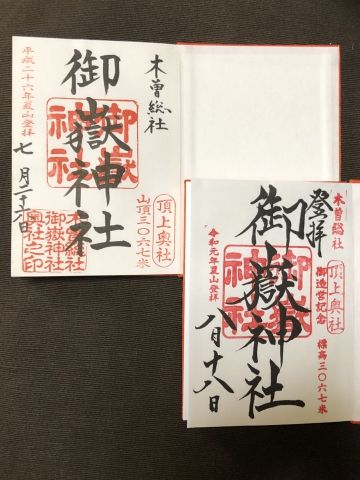 木曽総社
頂上奥社
山頂三〇六七米
御嶽神社
御嶽神社
木曽総社
御嶽神社
奥社之印
平成二十六年夏山登拝
七月二十六日
木曽總社
頂上奥社
御造営記念
標高三〇六七米
登拝
御嶽神社
御嶽神社
令和元年夏山登拝
八月十八日